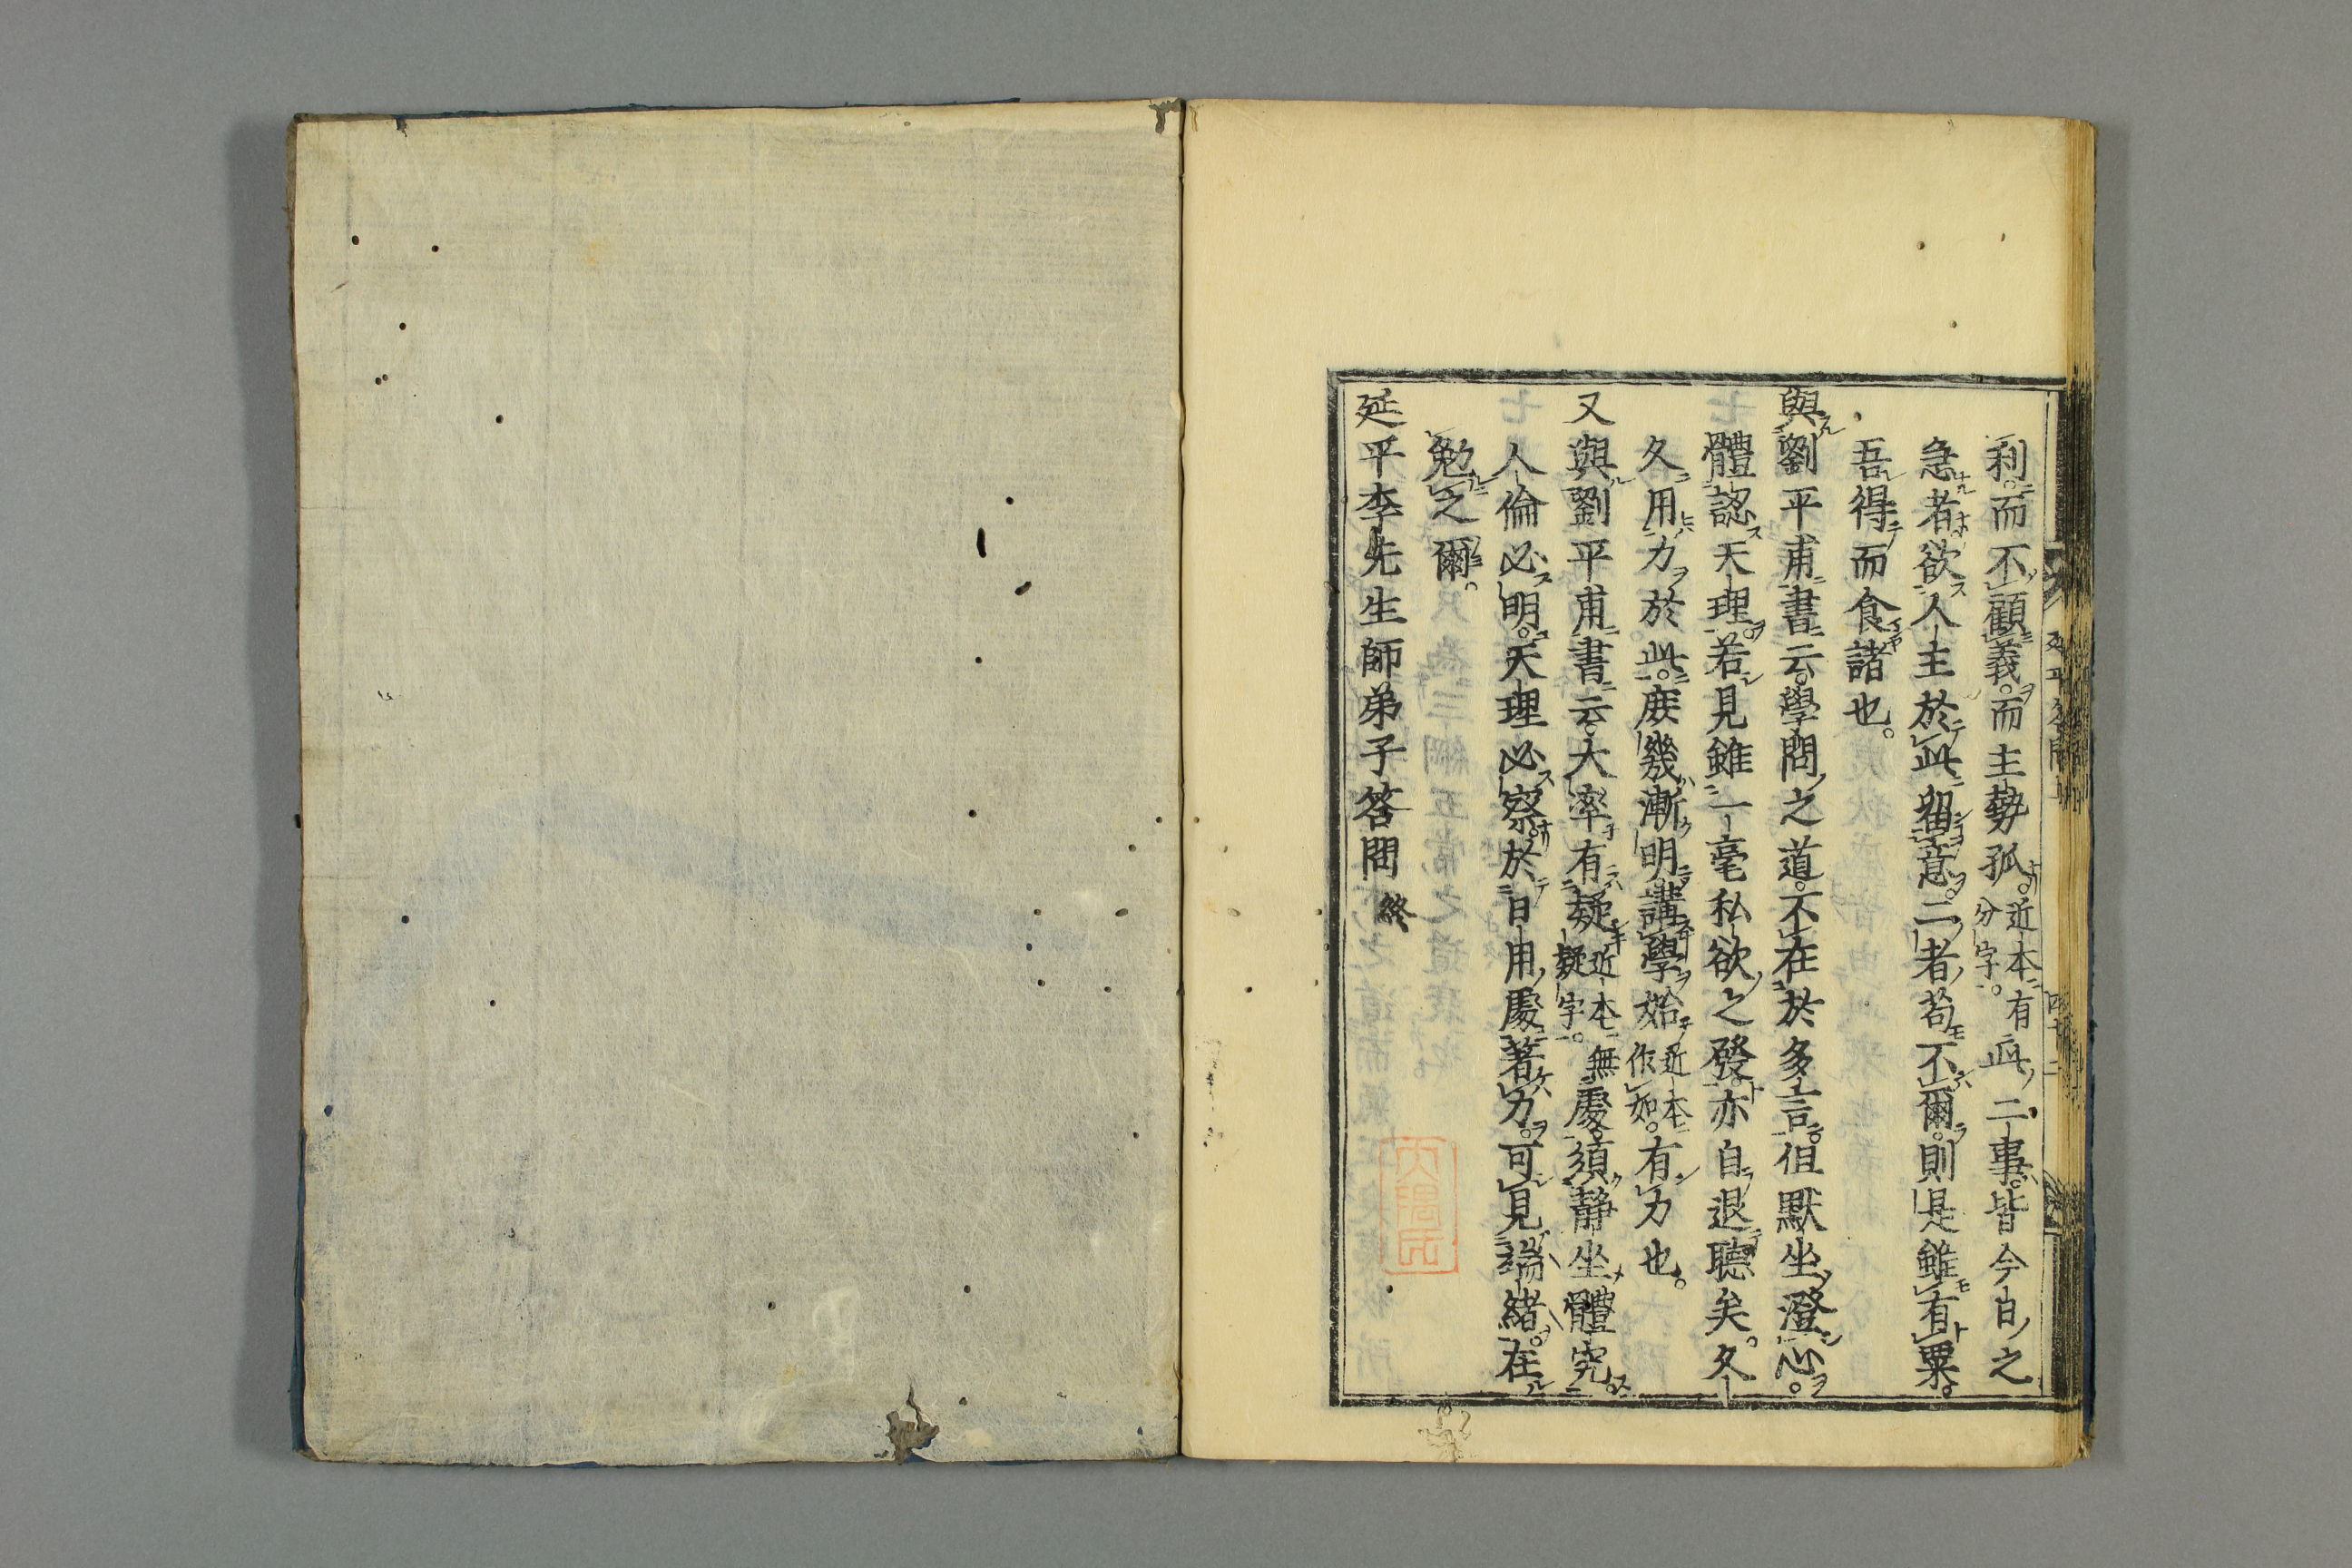 利而不顧義。而主勢孤。近本有分字。此二事。皆今日之
急者。欲人主於此留意。二者苟不爾。則是雖有粟。
吾得而食諸也。
與劉平甫書云。學問之道。不在於多言。但默坐澄心。
體認天理。若見雖一毫私欲之發。亦自退聽矣。久
久用力於此。庻幾漸明。講學始近本作如。有力也。
又與劉平甫書云。大率有疑近本無疑字。處。須静坐體究。
人倫必明。天理必察。於日用處著力。可見端緒。在
勉之爾。
延平李先生師弟子答問 終